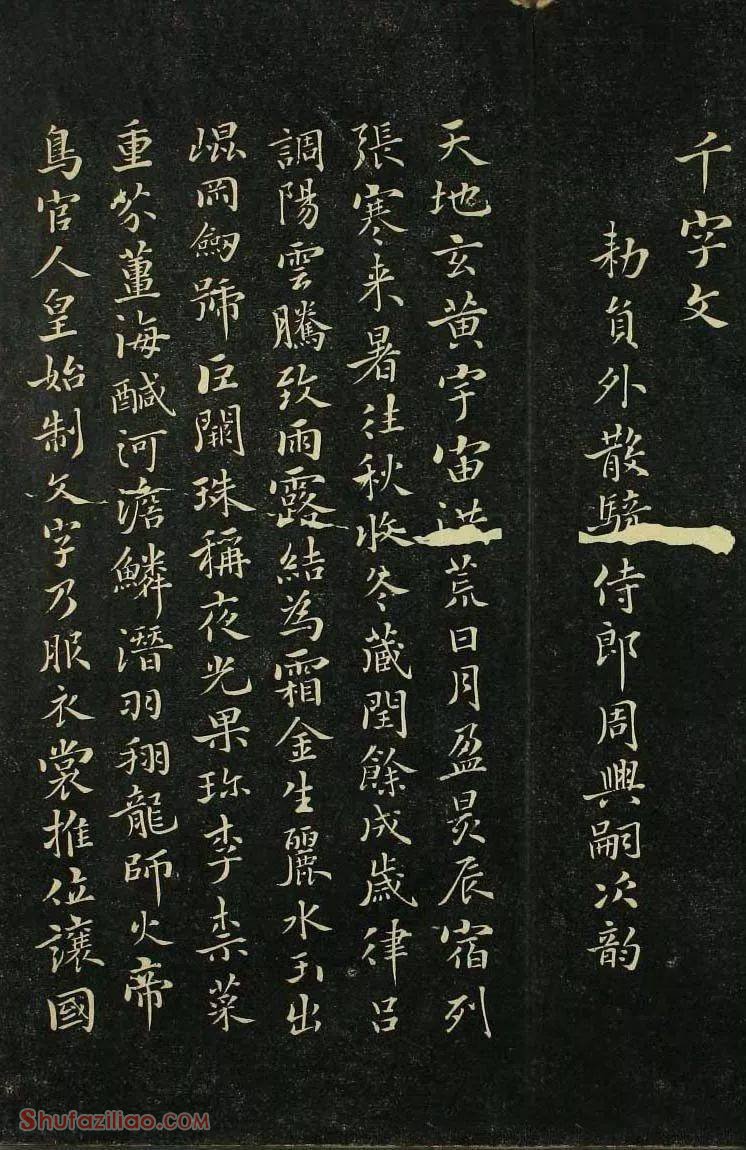 千字文
勑員外散騎侍郎周興嗣次韵
天地玄黄宇宙洪荒日月盈昃辰宿列
張寒来暑往秋收冬藏閏餘成歲律吕
調陽雲騰致雨露結為霜金生麗水玉出
崐岡劒號巨闕珠稱夜光果珎李柰菜
重芥薑海醎河澹鱗潛羽翔龍師火帝
鳥官人皇始制文字乃服衣裳推位讓國
Shufaziliao.com